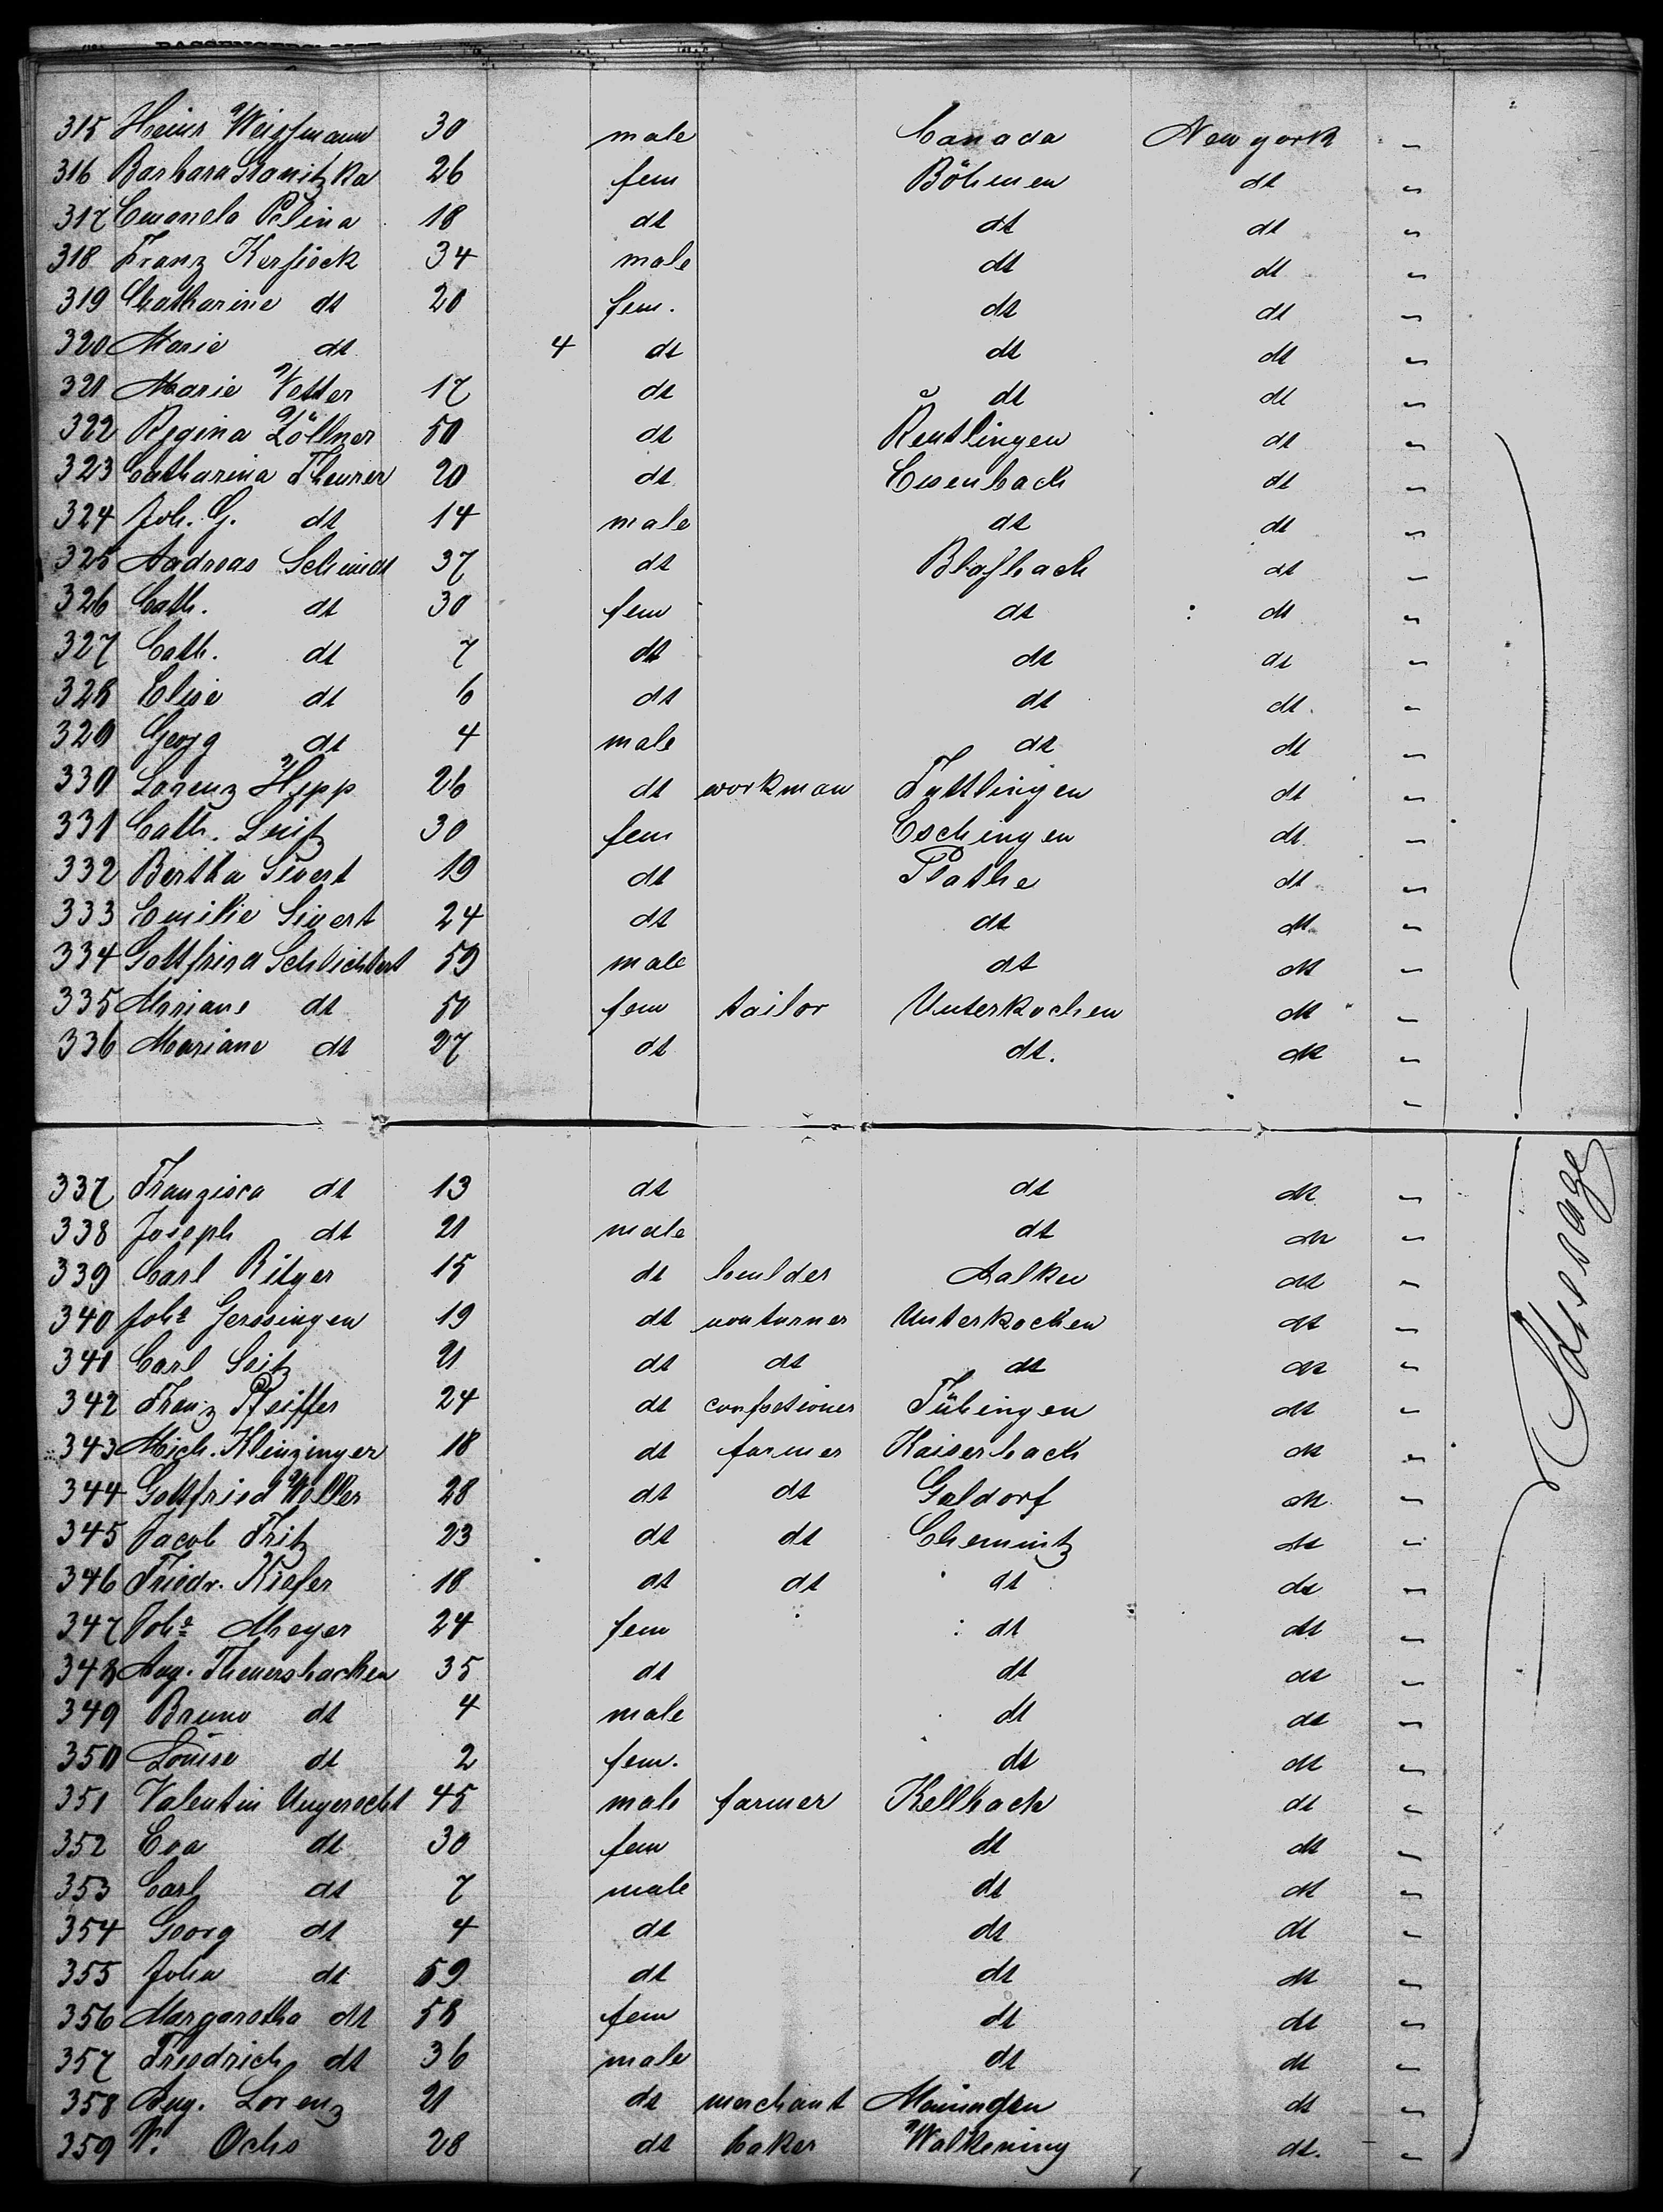 PASSENGERS LIST
315 Heinr Weissmann 30 male Canada New york "
316 Barbara Kranitzka 26 fem Böhmen dt "
317 Emanela Pelina 18 dt dt dt "
318 Franz Kersisek 34 male dt dt "
319 Catharine dt 20 fem. dt dt "
320 Marie dt 4 dt dt dt "
321 Marie Vetter 17 dt dt dt "
322 Regina Zöllner 50 dt Reutlingen dt "
323 Catharina Theurer 20 dt Eisenbach dt "
324 Joh. G. dt 14 male dt dt "
325 Andreas Schmidt 37 dt Blasbach dt "
326 Cath. dt 30 fem dt dt "
327 Cath. dt 7 dt dt dt "
328 Elise dt 6 dt dt dt "
329 Georg dt 4 male dt dt "
330 Lorenz Hepp 26 dt workman Tuttlingen dt "
331 Cath. Seitz 30 fem Eschingen dt "
332 Bertha Sivert 19 dt Plathe dt "
333 Emilie Sivert 24 dt dt dt "
334 Gottfried Schlichtert 59 male dt dt "
335 Mariane dt 50 fem tailor Unterkochen dt "
336 Mariane dt 27 dt dt. dt "
337 Franzisca dt 13 dt dt dt "
338 Joseph dt 21 male dt dt "
339 Carl Ritger 15 dt Aalken dt "
340 Johs Gerssingen 19 dt Unterkochen dt "
341 Carl Seitz 21 dt dt dt dt "
342 Franz Pfeiffer 24 dt confectioner Tübingen dt "
343 Mich. Klenzinger 18 dt farmer Kaiserbach dt "
344 Gottfried Woller 28 dt dt Galdorf dt "
345 Jacob Fritz 23 dt dt Chemnitz dt "
346 Friedr. Kiefer 18 dt dt dt dt "
347 Johe Meyer 24 fem dt dt "
348 Aug. Theuersbacken 35 dt dt dt "
349 Bruno dt 4 male dt dt "
350 Louise dt 2 fem. dt dt "
351 Valentin Ungerecht 45 male farmer Kellbach dt "
352 Eva dt 30 fem dt dt "
353 Carl dt 7 male dt dt "
354 Georg dt 4 dt dt dt "
355 John dt 59 dt dt dt "
356 Margaretha dt 58 fem dt dt "
357 Friedrich dt 36 male dt dt "
358 Aug. Lorenz 21 dt merchant dt "
359 V. Ochs 28 dt baker Walkening dt. "
Steerage